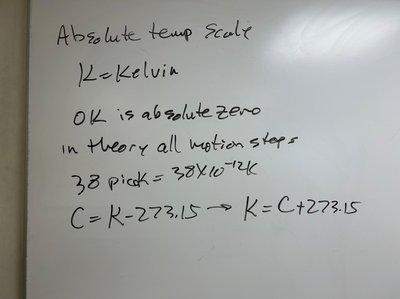 Absolute temp scale
K=Kelvin
0K is absolute zero
in theory all motion stops
38 picoK = 38X10⁻¹²K
C = K-273.15 → K=C+273.15